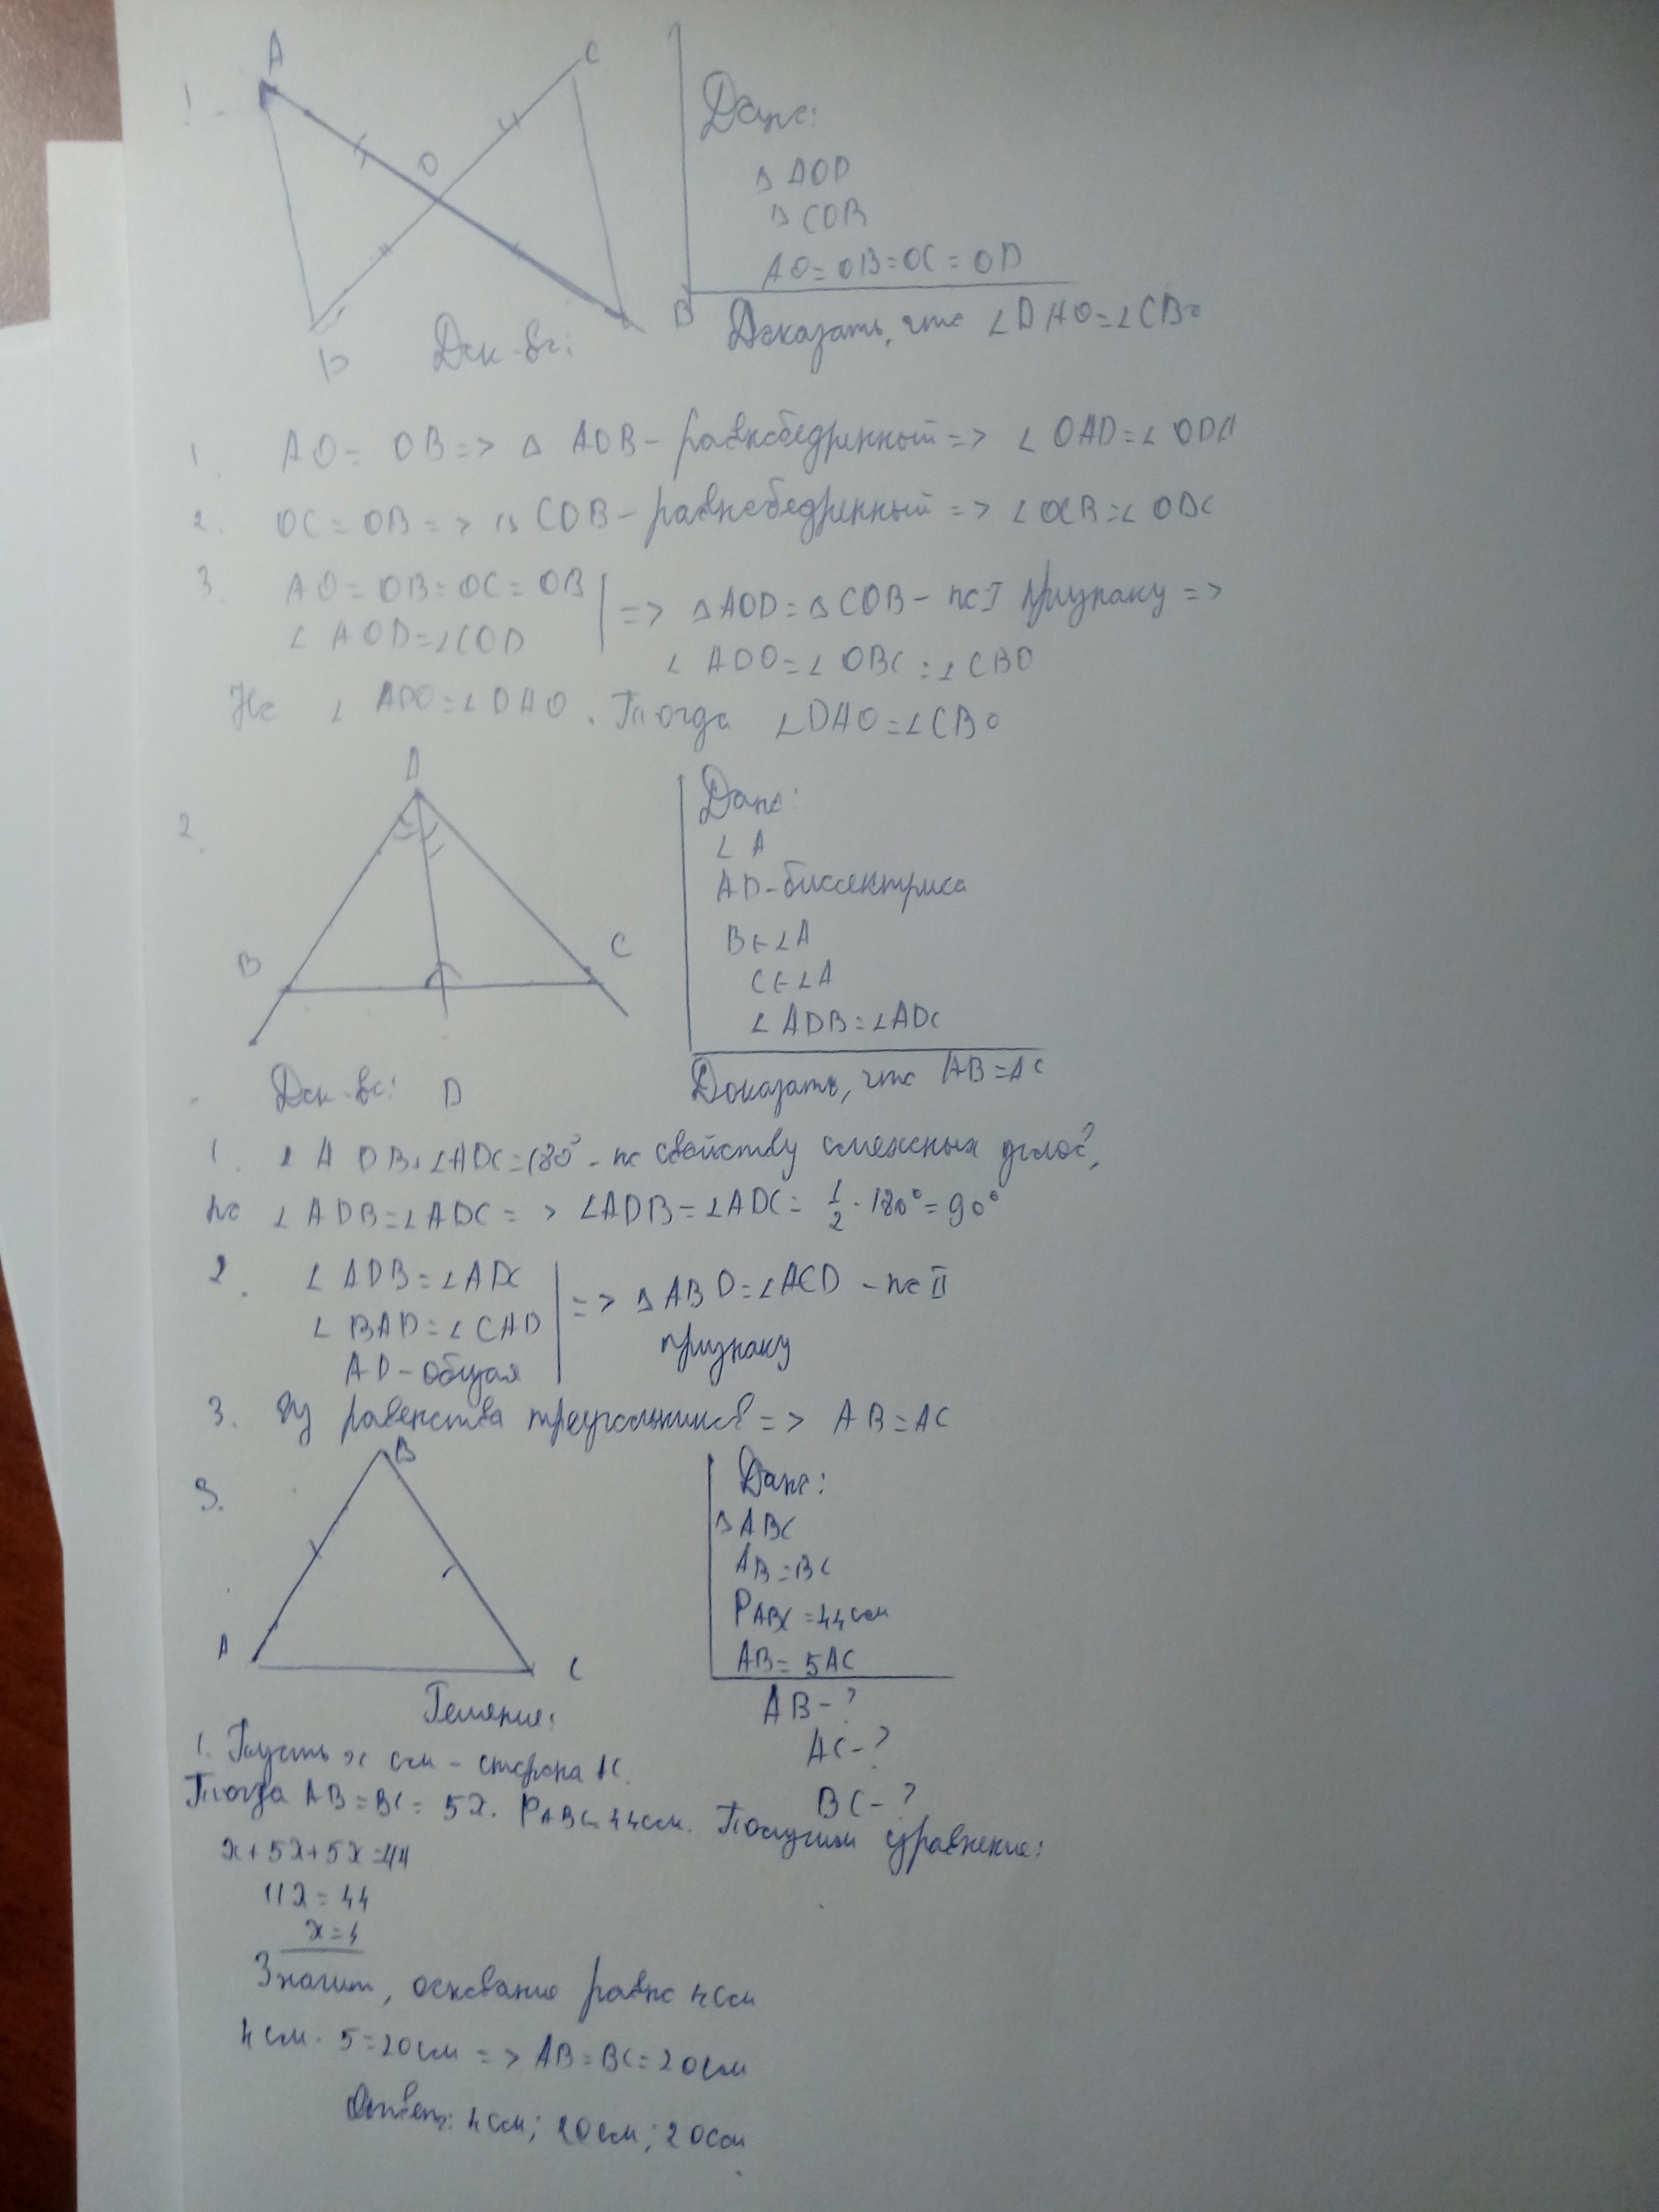 1.
A
C
O
D
B
Дано:
△ AOD
△ COB
AO = OB = OC = OD
Доказать, что ∠DAO = ∠CBO
Док-во:
1. AO = OB => △ AOB - равнобедренный => ∠ OAD = ∠ ODA
2. OC = OB => △ COB - равнобедренный => ∠ OCB = ∠ OBC
3. AO = OB = OC = OB
∠ AOD = ∠COD
=> △AOD = △COB - по I признаку =>
∠ ADO = ∠ OBC = ∠ CBO
Но ∠ ADO = ∠ DAO. Тогда ∠DAO = ∠CBO
2.
A
B
C
D
Дано:
∠ A
AD - биссектриса
B ∈ ∠A
C ∈ ∠A
∠ ADB = ∠ADC
Доказать, что AB = AC
Док-во:
1. ∠ ADB + ∠ADC = 180° - по свойству смежных углов,
но ∠ ADB = ∠ ADC => ∠ADB = ∠ADC = 1/2 · 180° = 90°
2. ∠ ADB = ∠ ADC
∠ BAD = ∠ CAD
AD - общая
=> △ ABD = ∠ACD - по II
признаку
3. Из равенства треугольников => AB = AC
3.
B
A
C
Дано:
△ ABC
AB = BC
P ABC = 44 см
AB = 5AC
AB - ?
AC - ?
BC - ?
Решение:
1. Пусть x см - сторона AC.
Тогда AB = BC = 5x. P ABC = 44 см. Получим уравнение:
x + 5x + 5x = 44
11x = 44
x = 4
Значит, основание равно 4 см
4 см · 5 = 20 см => AB = BC = 20 см
Ответ: 4 см; 20 см; 20 см